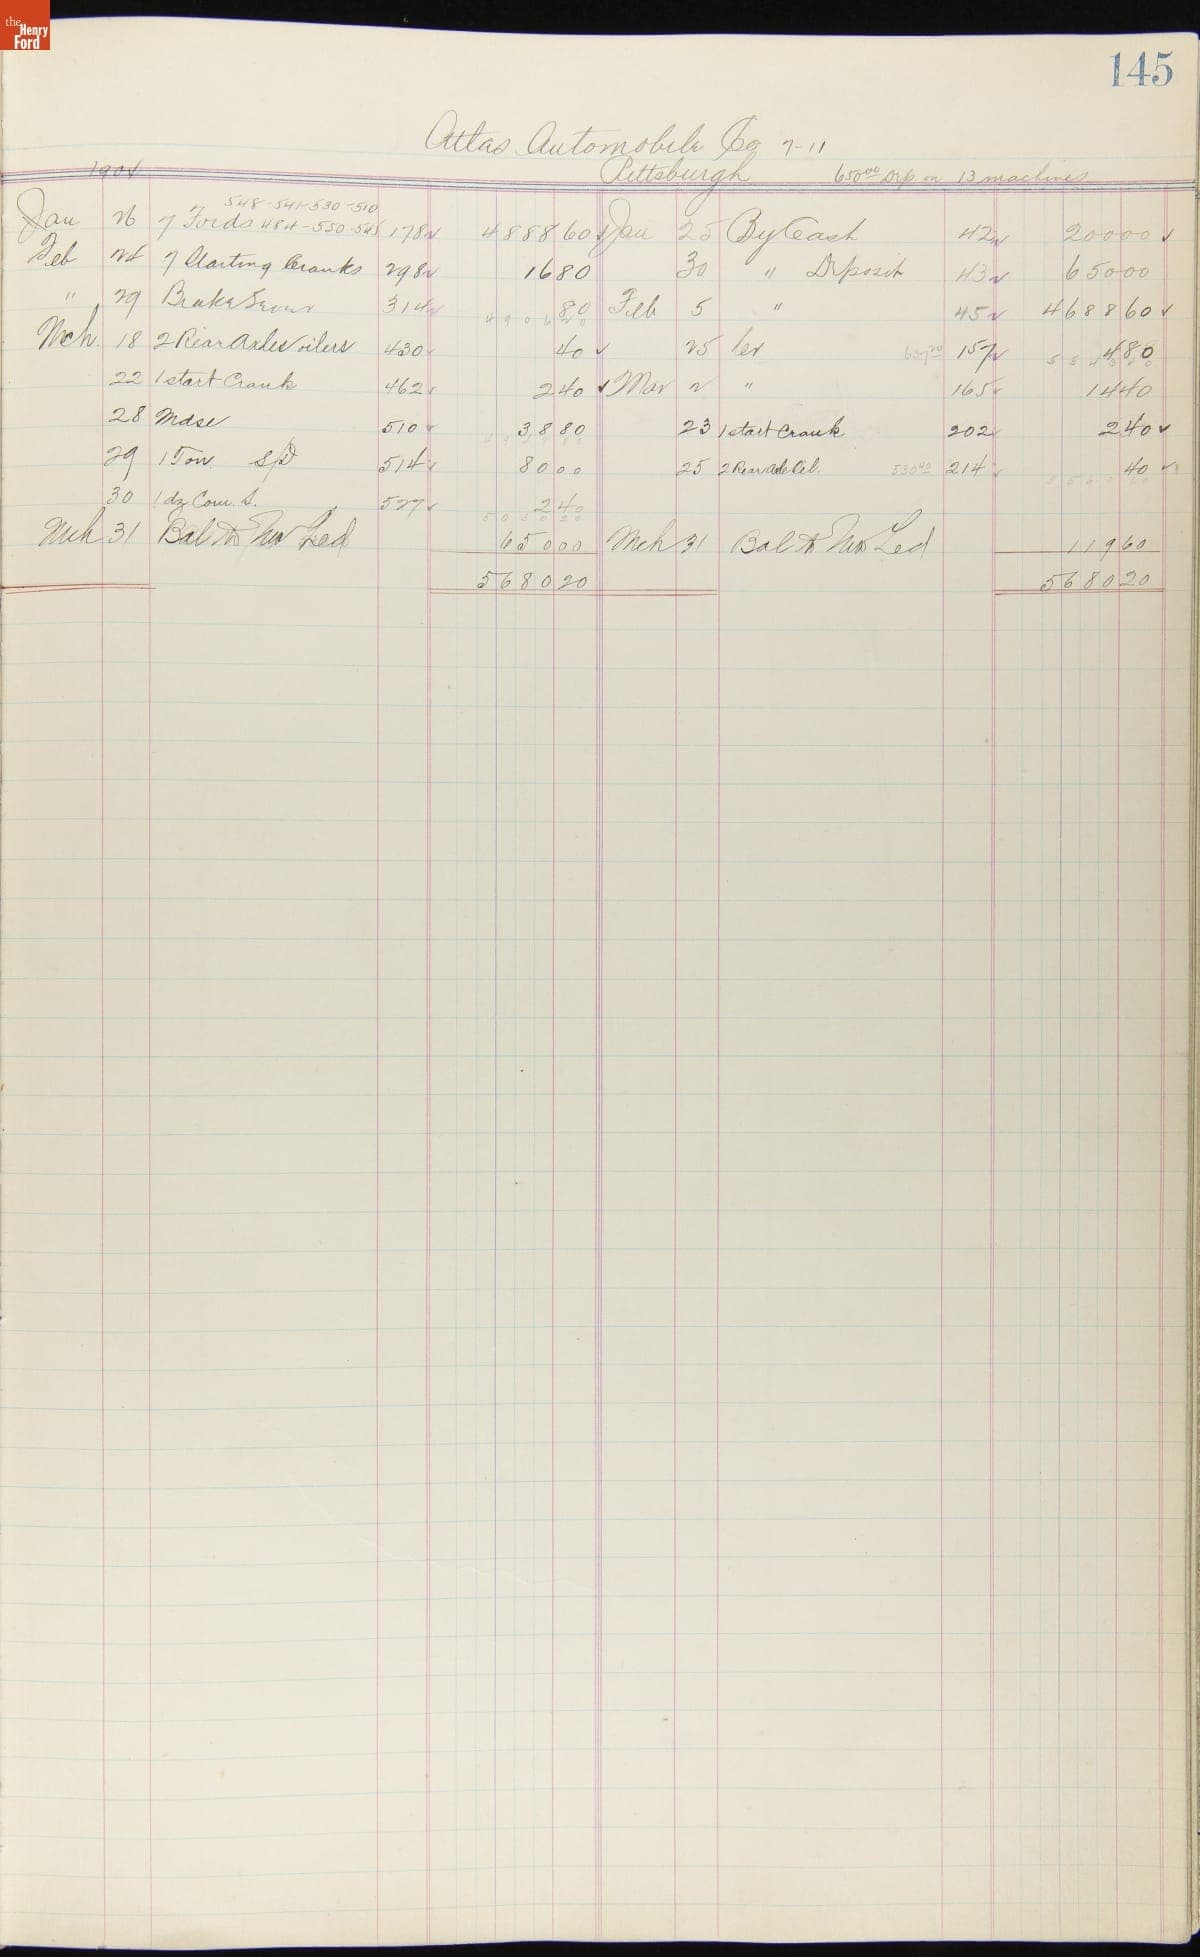 the Henry Ford
145
Atlas Automobile Co 7-11
1904 Pittsburgh 650.00 Dep on 13 machines
548-541-530-510
Jan 26 7 Fords 484-550-545 178 4888 60 Jan 25 By Cash 42 200 00
Feb 24 7 Starting Cranks 298 16 80 30 " Deposit 43 650 00
" 29 Brake 314 80 Feb 5 " 45 4688 60
4906 20
Mch. 18 2 Rear Axles oilers 430 40 25 157 4 80
22 1 start Crank 462 2 40 Mar 2 " 165 14 40
28 Mdse 510 38 80 23 1 start Crank 202 2 40
29 1 Ton 514 80 00 25 2 Rear Axle Oil. 214 40
30 1 dz Com. S. 527 2 40
5030 20
Mch 31 Bal to New Led 650 00 Mch 31 Bal to New Led 119 60
5680 20 5680 20